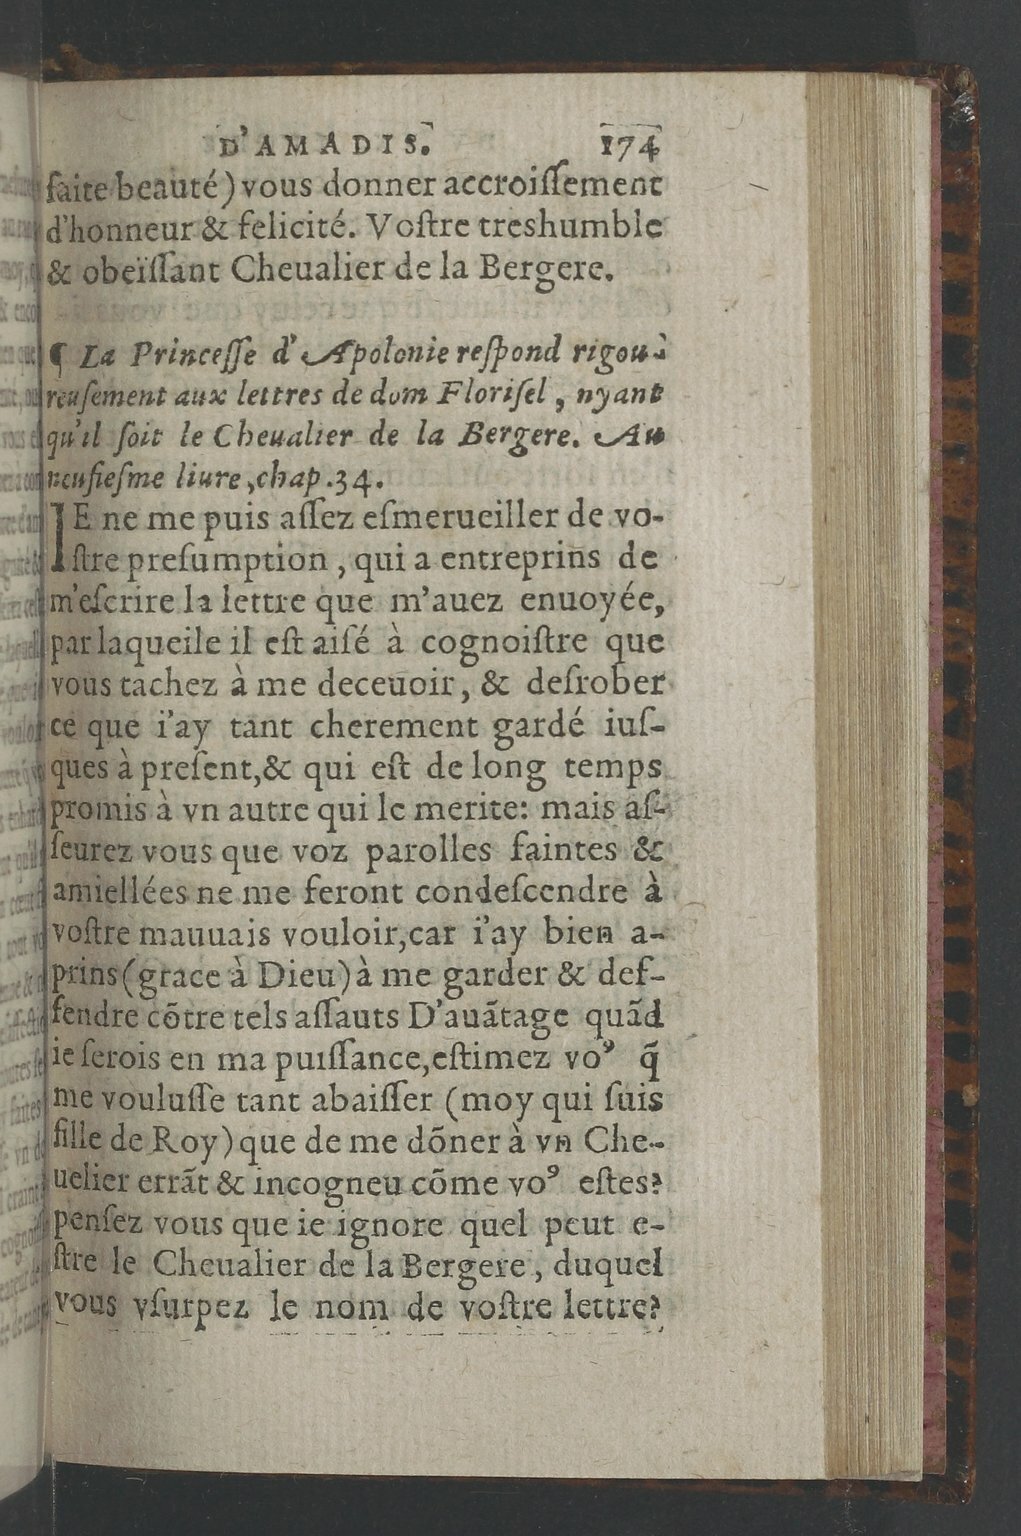 D'AMADIS. 174
faite beauté) vous donner accroiſſement
d'honneur & felicité. Voſtre treshumble
& obeïſſant Cheualier de la Bergere.
¶ La Princeſſe d'Apolonie reſpond rigou-
reuſement aux lettres de dom Floriſel, nyant
qu'il ſoit le Cheualier de la Bergere. Au
neufieſme liure, chap. 34.
IE ne me puis aſſez eſmerueiller de vo-
ſtre preſumption, qui a entreprins de
m'eſcrire la lettre que m'auez enuoyée,
par laquelle il eſt aiſé à cognoiſtre que
vous tachez à me deceuoir, & deſrober
ce que i'ay tant cherement gardé iuſ-
ques à preſent, & qui eſt de long temps
promis à vn autre qui le merite: mais aſ-
ſeurez vous que voz parolles faintes &
amiellées ne me feront condeſcendre à
voſtre mauuais vouloir, car i'ay bien a-
prins (grace à Dieu) à me garder & def-
fendre cõtre tels aſſauts D'auãtage quãd
ie ſerois en ma puiſſance, eſtimez voꝰ q̃
me vouluſſe tant abaiſſer (moy qui ſuis
fille de Roy) que de me dõner à vn Che-
uelier errãt & incogneu cõme voꝰ eſtes?
penſez vous que ie ignore quel peut e-
ſtre le Cheualier de la Bergere, duquel
vous vſurpez le nom de voſtre lettre?